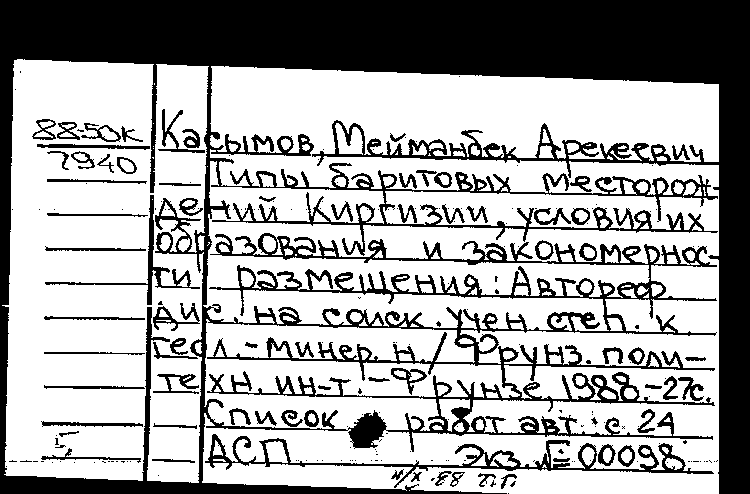 88-50к
7940
Касымов, Мейманбек Арекеевич
Типы баритовых месторож-
дений Киргизии, условия их
образования и закономернос-
ти размещения: Автореф.
дис. на соиск. учен. степ. к.
геол.-минер. н. / Фрунз. поли-
техн. ин-т. - Фрунзе, 1988. - 27с.
Список работ авт.: с. 24
ДСП. Экз. № 00098.
5
88 П.П